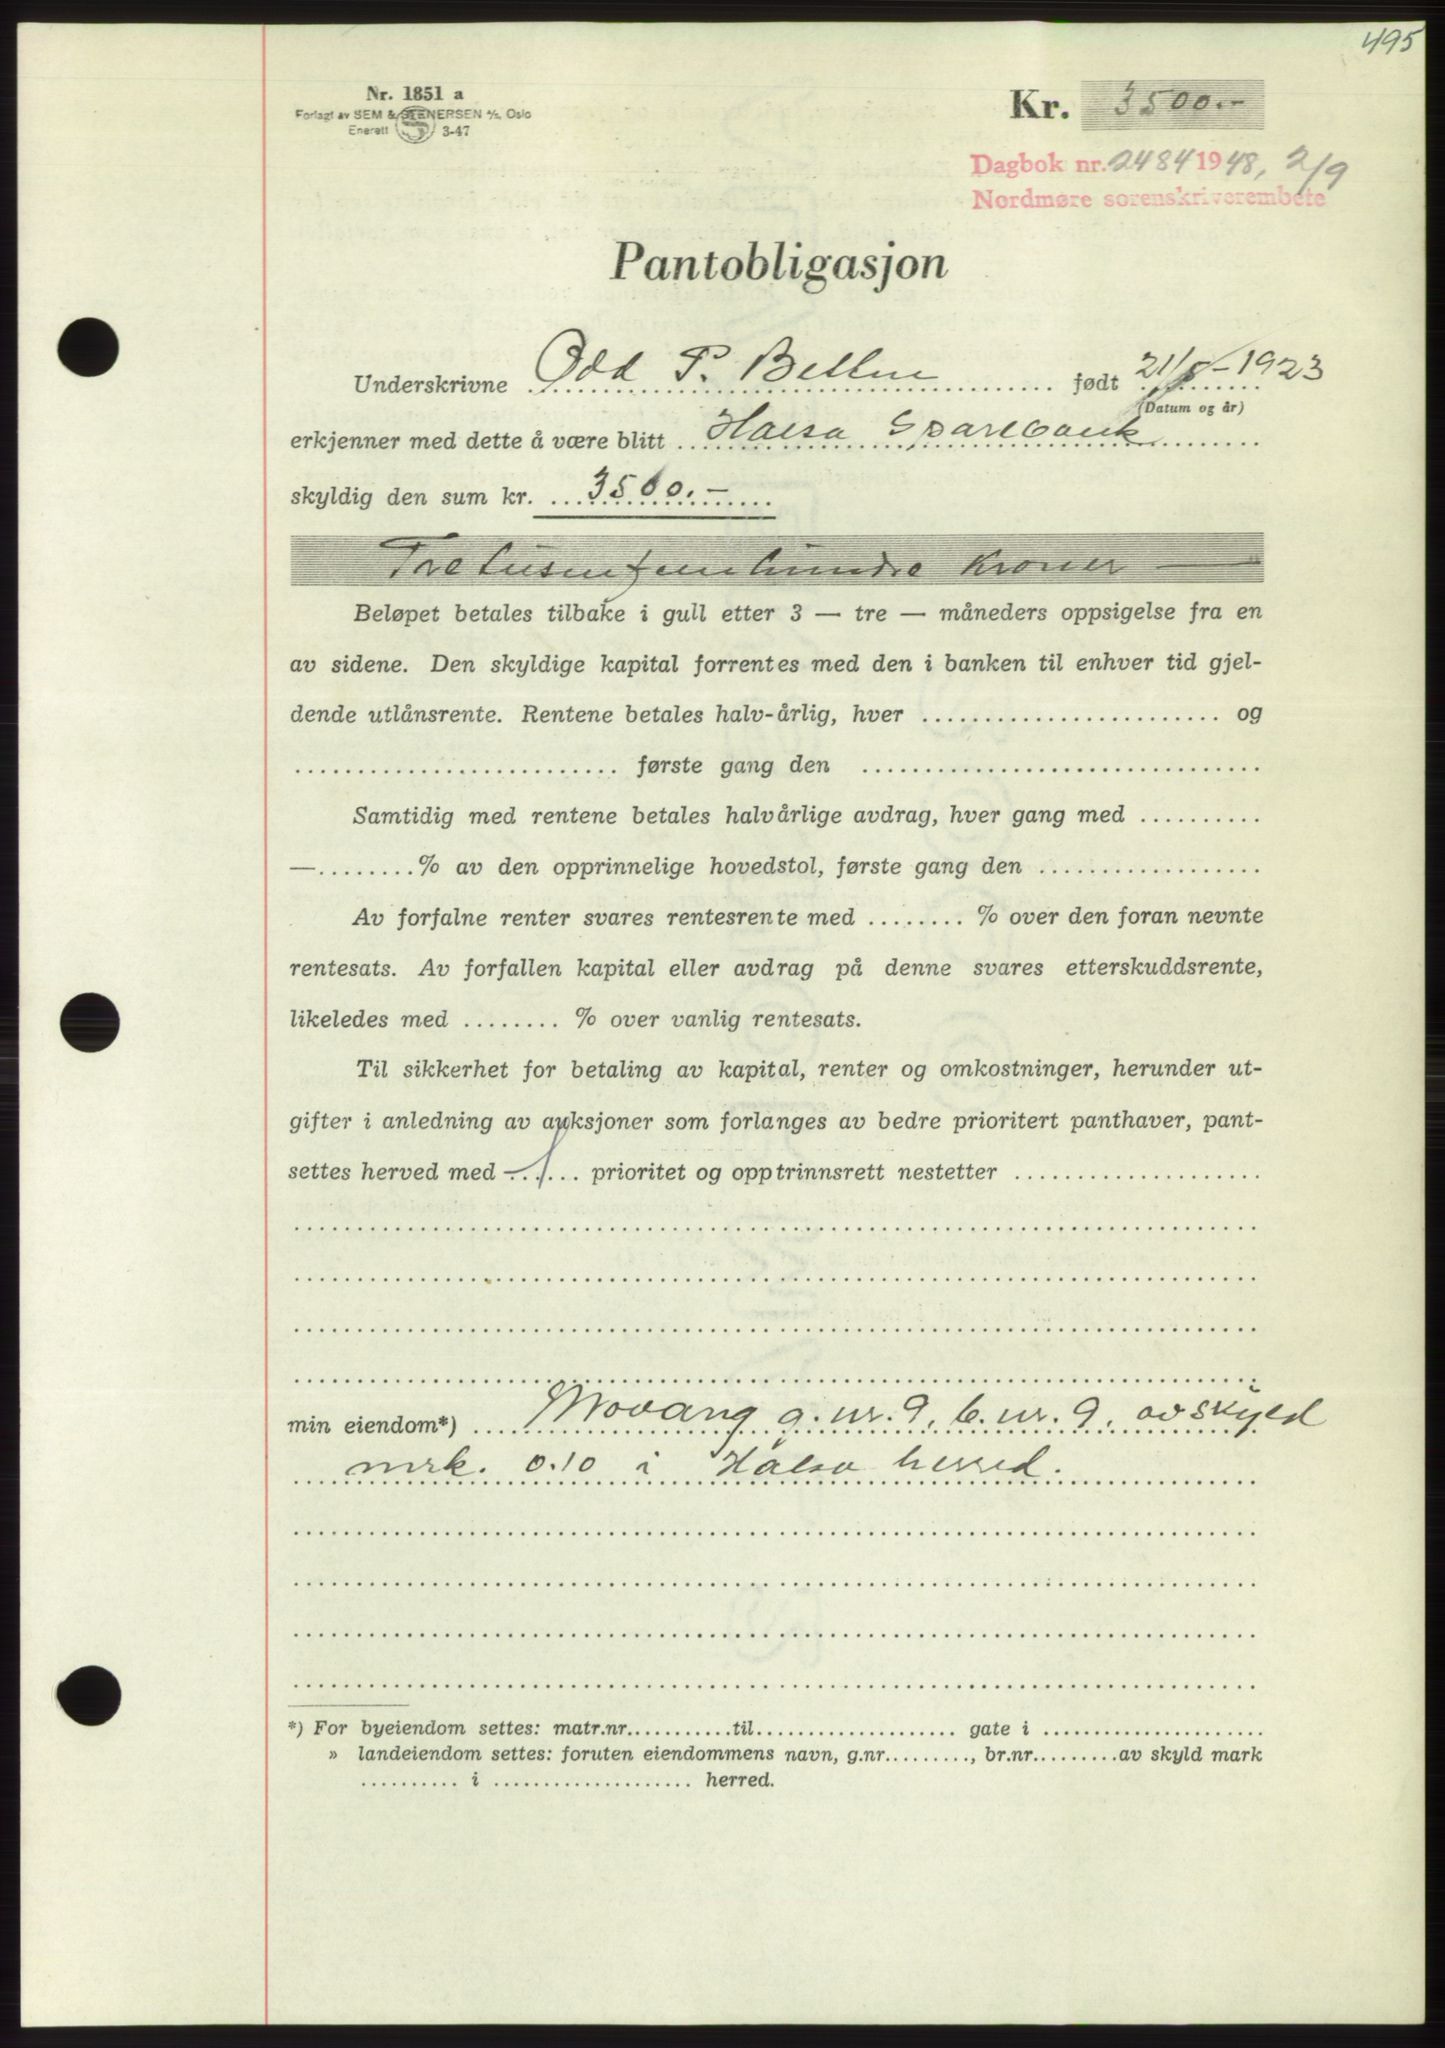 495
Nr. 1851 a
Forlagt av SEM & STENERSEN A/S, Oslo
Enerett 3-47
Kr. 3500.-
Dagbok nr. 2484 1948, 2/9
Nordmøre sorenskriverembete
Pantobligasjon
Underskrivne Odd P. født 21/ -1923
(Datum og år)
erkjenner med dette å være blitt Halsa Sparebank
skyldig den sum kr. 3500.-
Tretusenfemhundre kroner —
Beløpet betales tilbake i gull etter 3 — tre — måneders oppsigelse fra en
av sidene. Den skyldige kapital forrentes med den i banken til enhver tid gjel-
dende utlånsrente. Rentene betales halv-årlig, hver .......... og
.......... første gang den ..........
Samtidig med rentene betales halvårlige avdrag, hver gang med ..........
—........% av den opprinnelige hovedstol, første gang den ..........
Av forfalne renter svares rentesrente med ........ % over den foran nevnte
rentesats. Av forfallen kapital eller avdrag på denne svares etterskuddsrente,
likeledes med ........ % over vanlig rentesats.
Til sikkerhet for betaling av kapital, renter og omkostninger, herunder ut-
gifter i anledning av auksjoner som forlanges av bedre prioritert panthaver, pant-
settes herved med — 1 prioritet og opptrinnsrett nestetter ..........
min eiendom*) Movang g. nr. 9, b. nr. 9, av skyld
mrk. 0.10 i Halsa herred.
*) For byeiendom settes: matr.nr...........til.................... gate i ......................
» landeiendom settes: foruten eiendommens navn, g.nr........., br.nr.........av skyld mark
.......... i .................... herred.